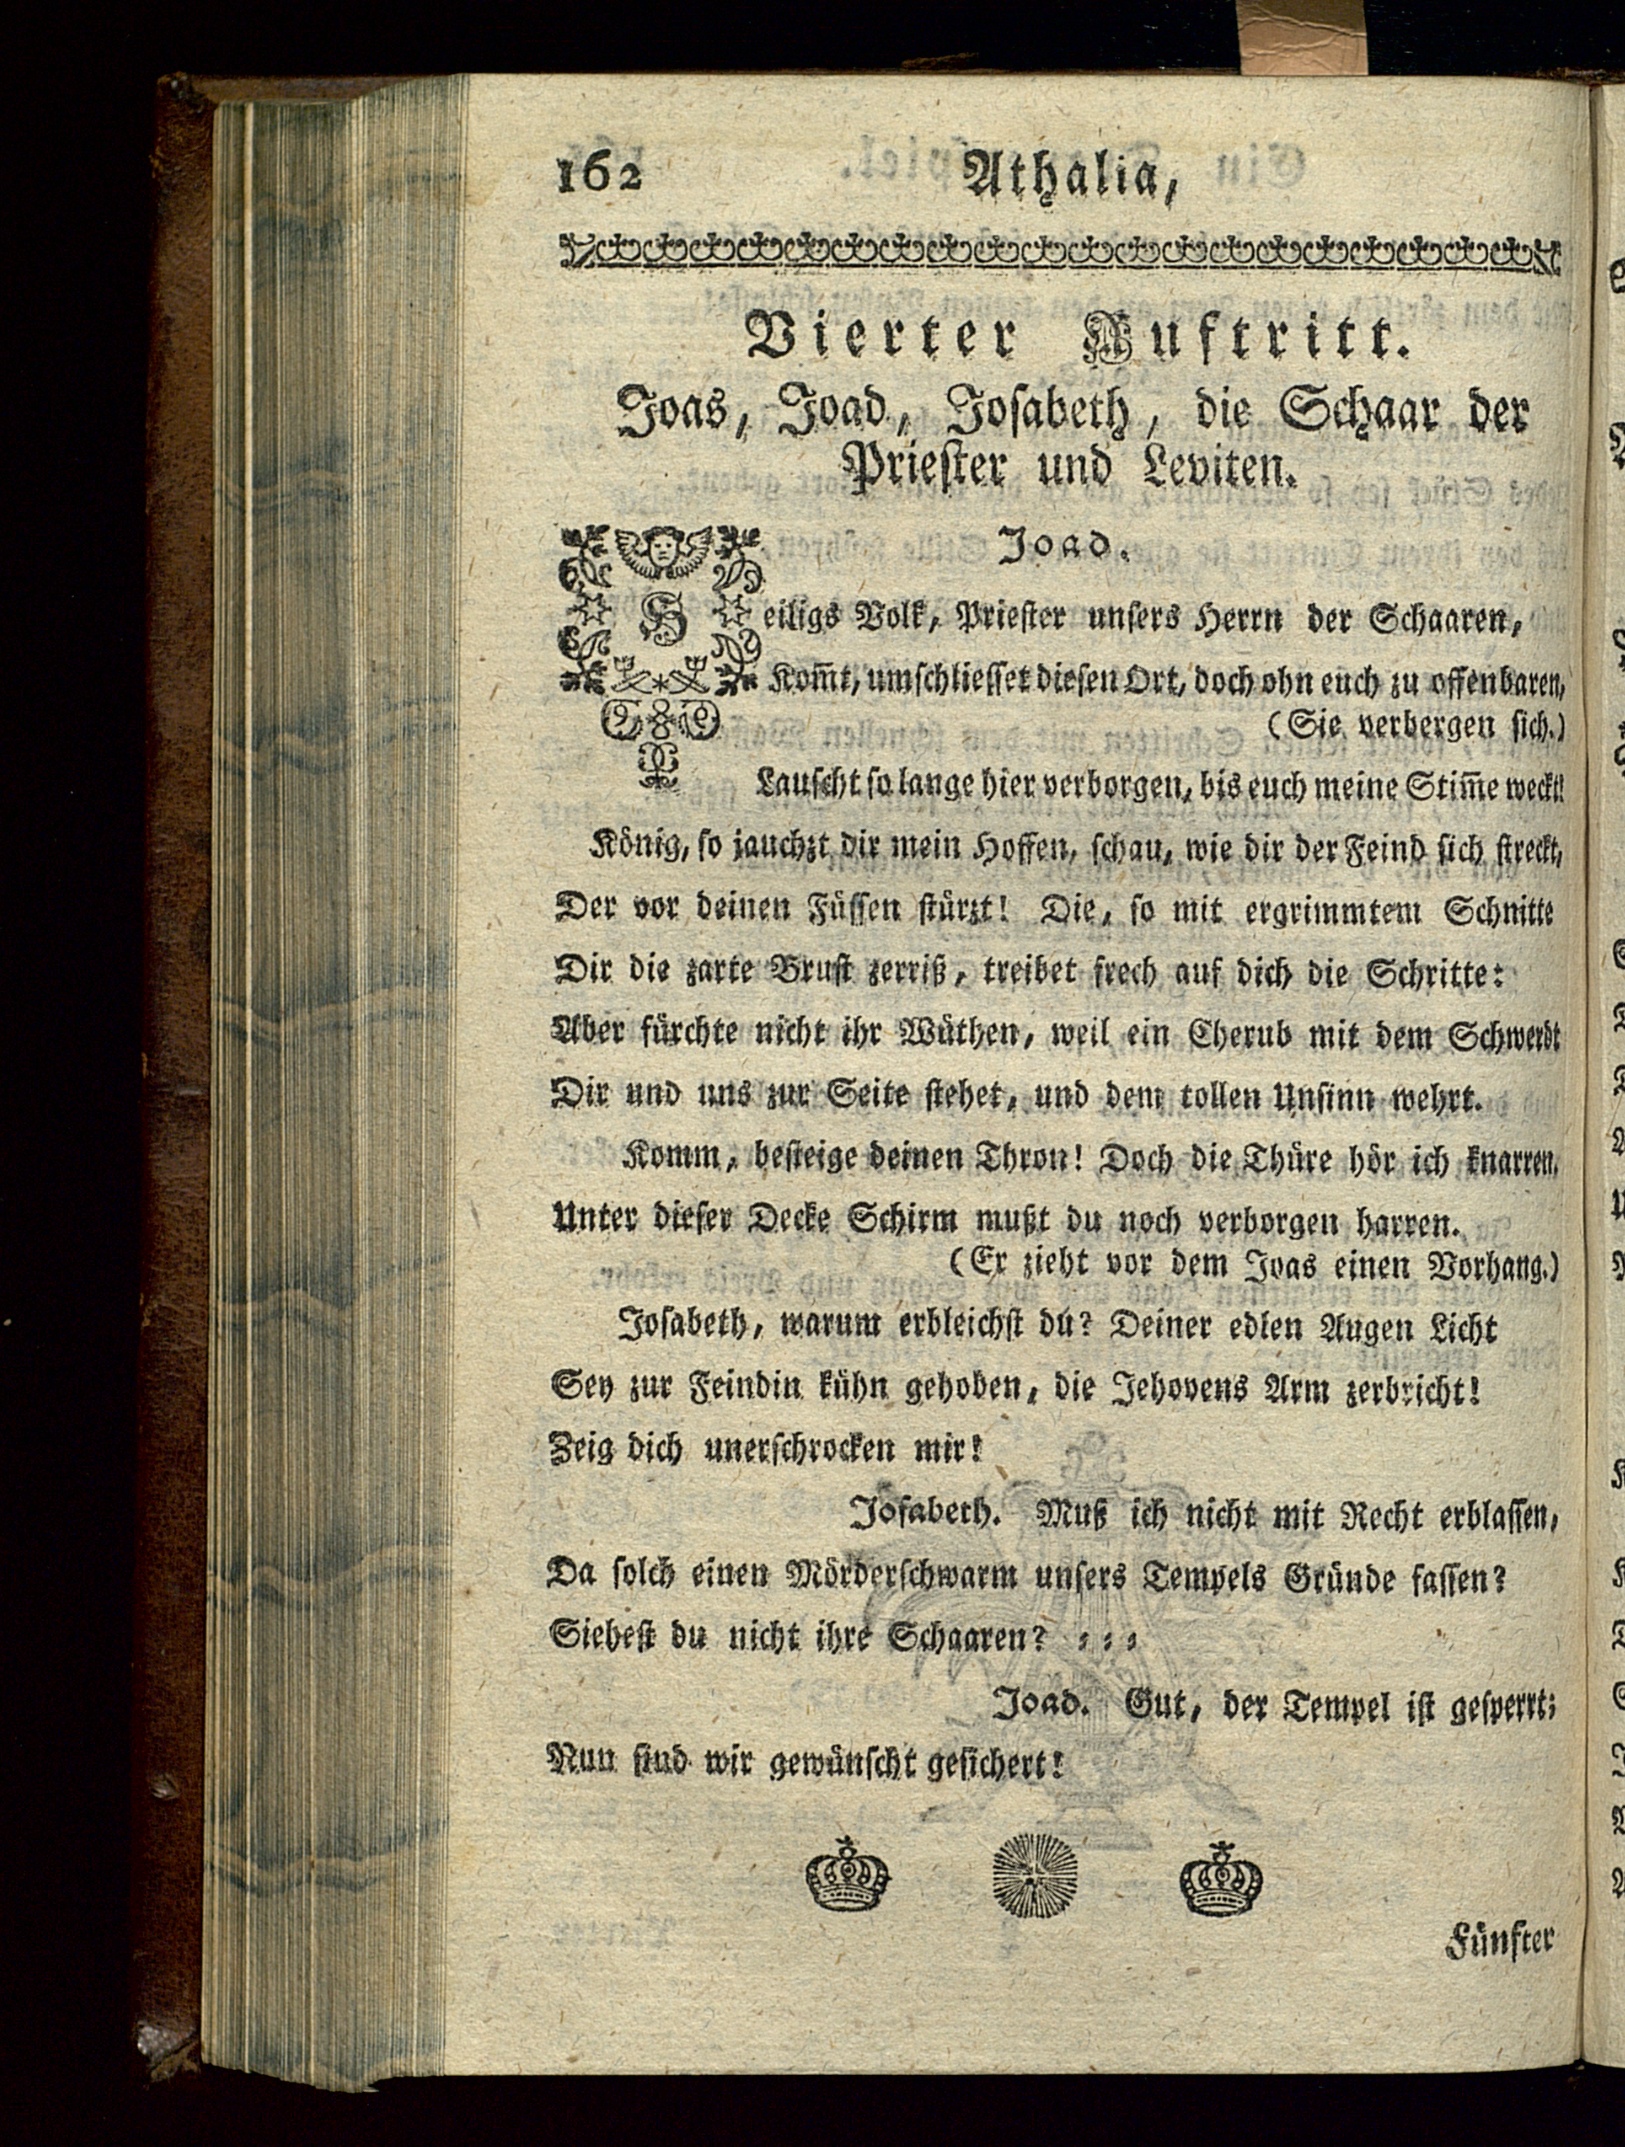 162 Athalia,
Vierter Auftritt.
Joas, Joad, Josabeth, die Schaar der
Priester und Leviten.
Joad.
Heiligs Volk, Priester unsers Herrn der Schaaren,
Kom̅t, umschliesset diesen Ort, doch ohn euch zu offenbaren,
(Sie verbergen sich.)
Lauscht so lange hier verborgen, bis euch meine Stim̅e weckt!
König, so jauchzt dir mein Hoffen, schau, wie dir der Feind sich streckt,
Der vor deinen Füssen stürzt! Die, so mit ergrimmtem Schnitte
Dir die zarte Brust zerriß, treibet frech auf dich die Schritte:
Aber fürchte nicht ihr Wüthen, weil ein Cherub mit dem Schwerdt
Dir und uns zur Seite stehet, und dem tollen Unsinn wehrt.
Komm, besteige deinen Thron! Doch die Thüre hör ich knarren.
Unter dieser Decke Schirm mußt du noch verborgen harren.
(Er zieht vor dem Joas einen Vorhang.)
Josabeth, warum erbleichst du? Deiner edlen Augen Licht
Sey zur Feindin kühn gehoben, die Jehovens Arm zerbricht!
Zeig dich unerschrocken mir!
Josabeth. Muß ich nicht mit Recht erblassen,
Da solch einen Mörderschwarm unsers Tempels Gründe fassen?
Siehest du nicht ihre Schaaren? = = =
Joad. Gut, der Tempel ist gesperrt;
Nun sind wir gewünscht gesichert!
Fünfter